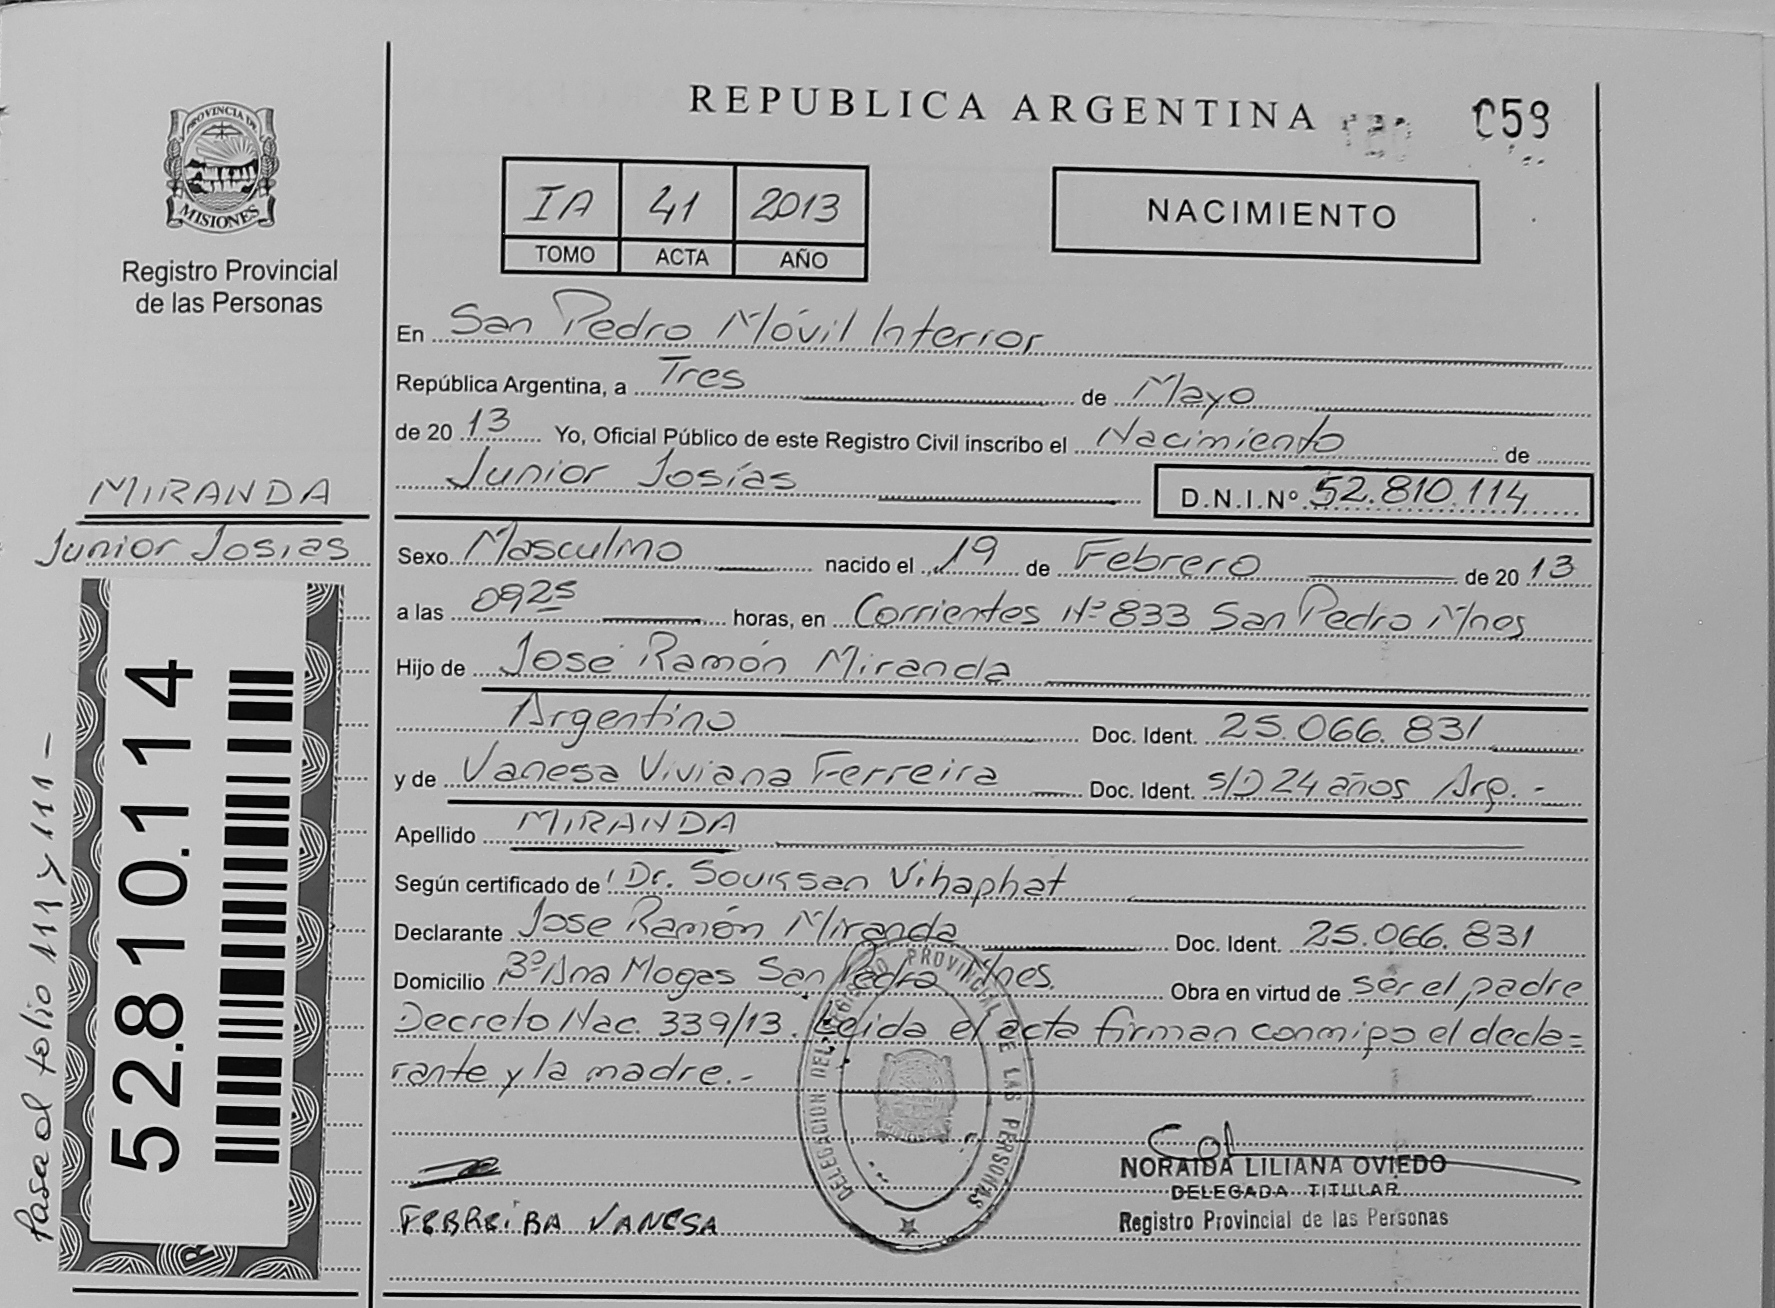 REPUBLICA ARGENTINA
059
PROVINCIA DE
MISIONES
Registro Provincial
de las Personas
IA 41 2013
TOMO ACTA AÑO
NACIMIENTO
En San Pedro Móvil Interior
República Argentina, a Tres de Mayo
de 20 13 Yo, Oficial Público de este Registro Civil inscribo el Nacimiento de
Junior Josías D.N.I.Nº 52.810.114
MIRANDA
Junior Josias
Sexo Masculino nacido el 19 de Febrero de 20 13
a las 0925 horas, en Corrientes Nº 833 San Pedro Mnes
Hijo de José Ramón Miranda
Argentino Doc. Ident. 25.066.831
y de Vanesa Viviana Ferreira Doc. Ident. s/D 24 años Arg.-
Apellido MIRANDA
Según certificado de Dr. Souissan Vihaphat
Declarante Jose Ramón Miranda Doc. Ident. 25.066.831
Domicilio Bº Ana Mogas San Pedro Mnes. Obra en virtud de ser el padre
Decreto Nac. 339/13. Leida el acta firman conmigo el decla=
rante y la madre.-
52.810.114
Pasa al folio 111 y 111 -
DELEGACION DEL REGISTRO PROVINCIAL DE LAS PERSONAS
NORAIDA LILIANA OVIEDO
DELEGADA TITULAR
Registro Provincial de las Personas
FERREIRA VANESA